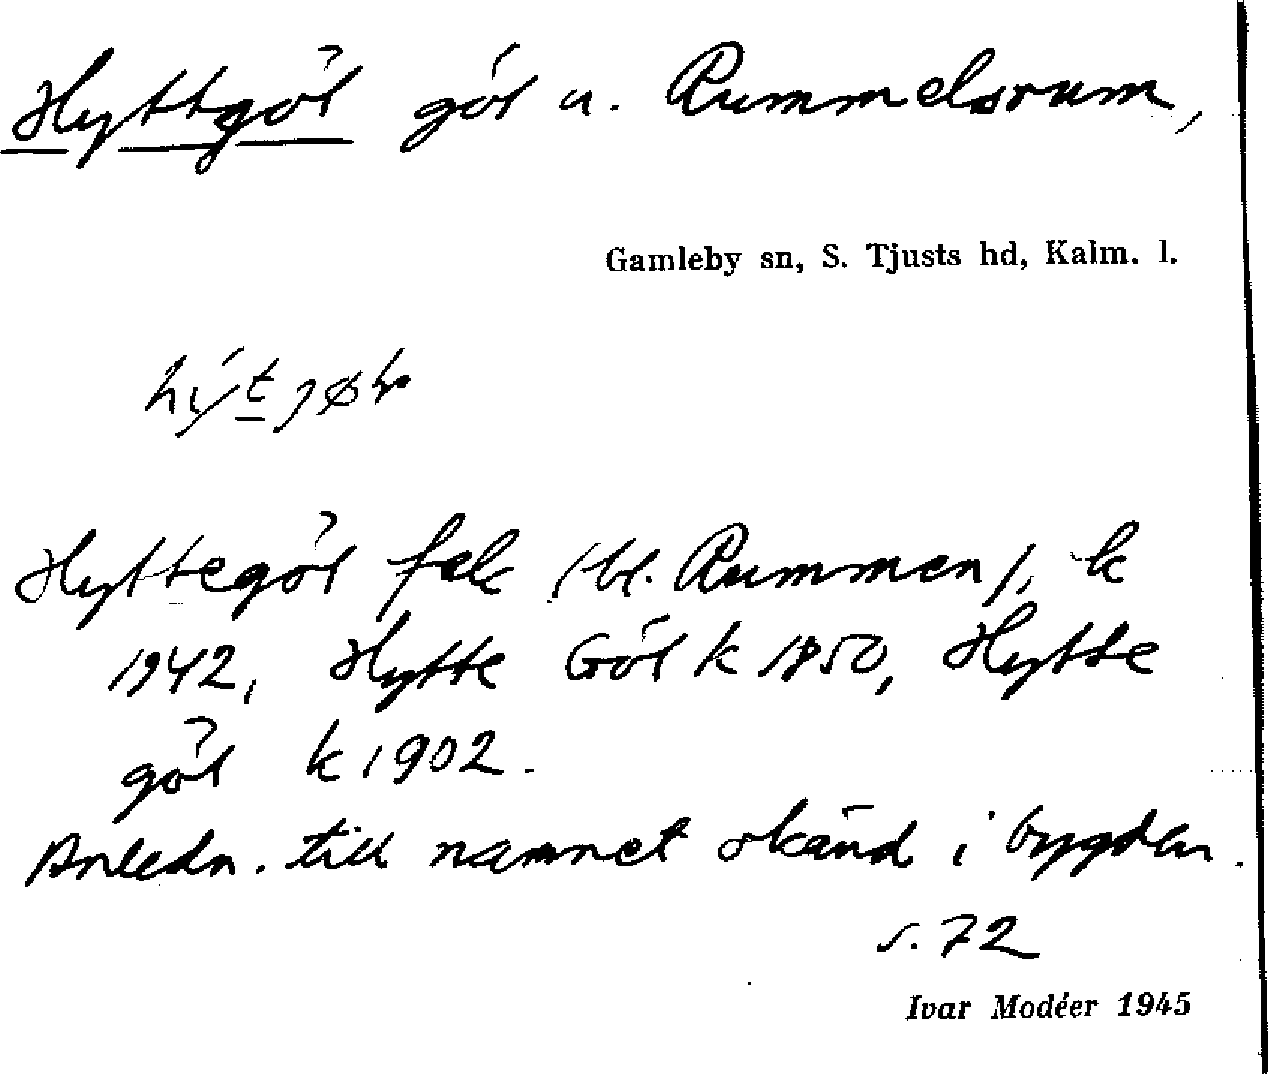 Hyttgöl göl u. Rummelsrum,
Gamleby sn, S. Tjusts hd, Kalm. l.
Hyttegöl fek (bl. Rummen), k
1942, Hytte Göl k 1850, Hytte
göl k 1902.
Anledn. till namnet okänd i bygden.
s. 72
Ivar Modéer 1945